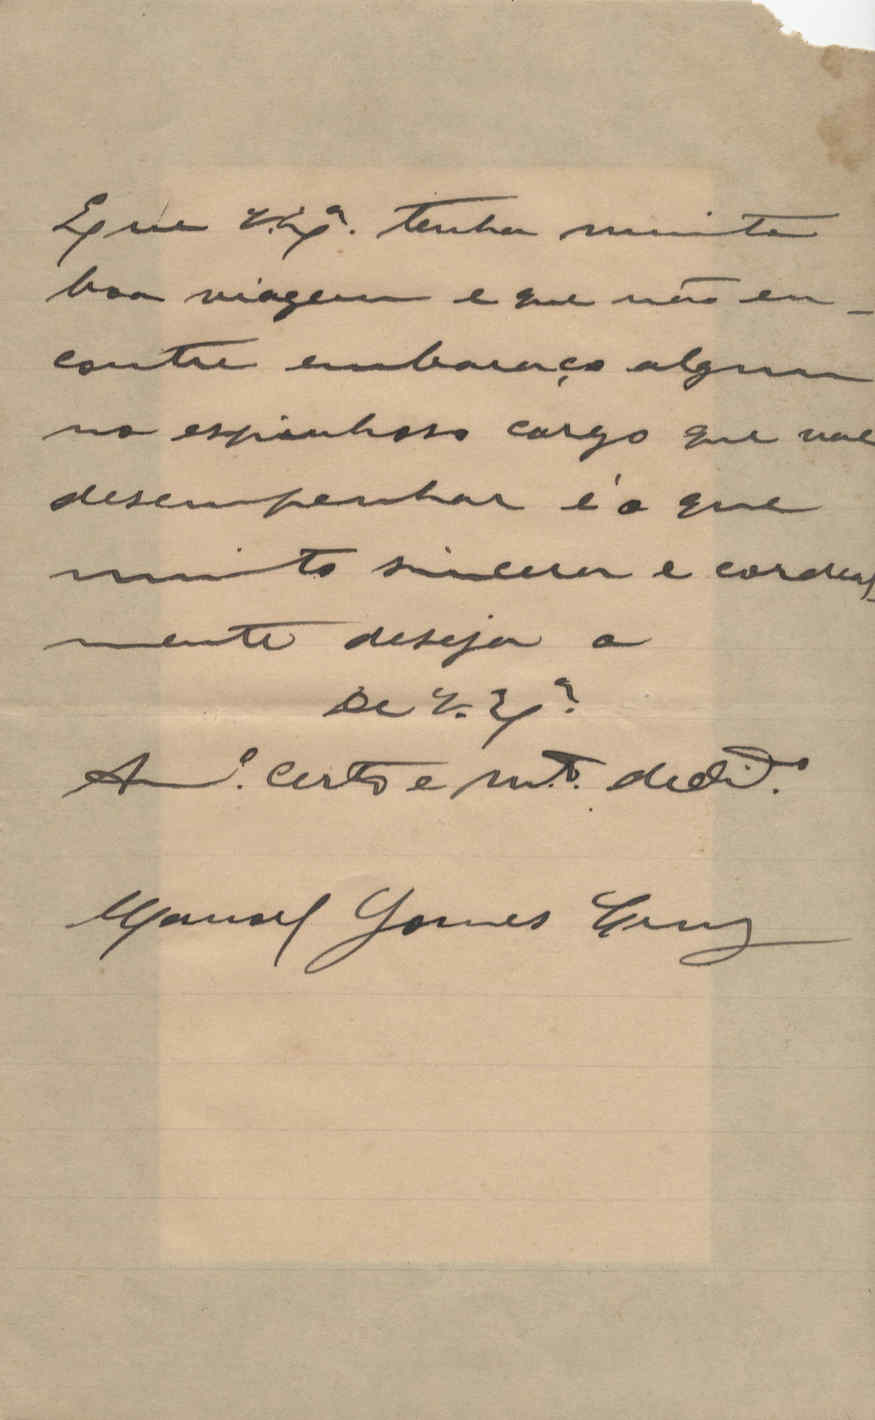 E que V. Ex.ª tenha muita
boa viagem e que não en-
contre embaraço algum
no espinhoso cargo que vae
desempenhar é o que
muito sincera e cordeal-
mente deseja o
De V. Ex.ª
Am.º certo e m.to dedic.º
Manoel Gomes Cruz